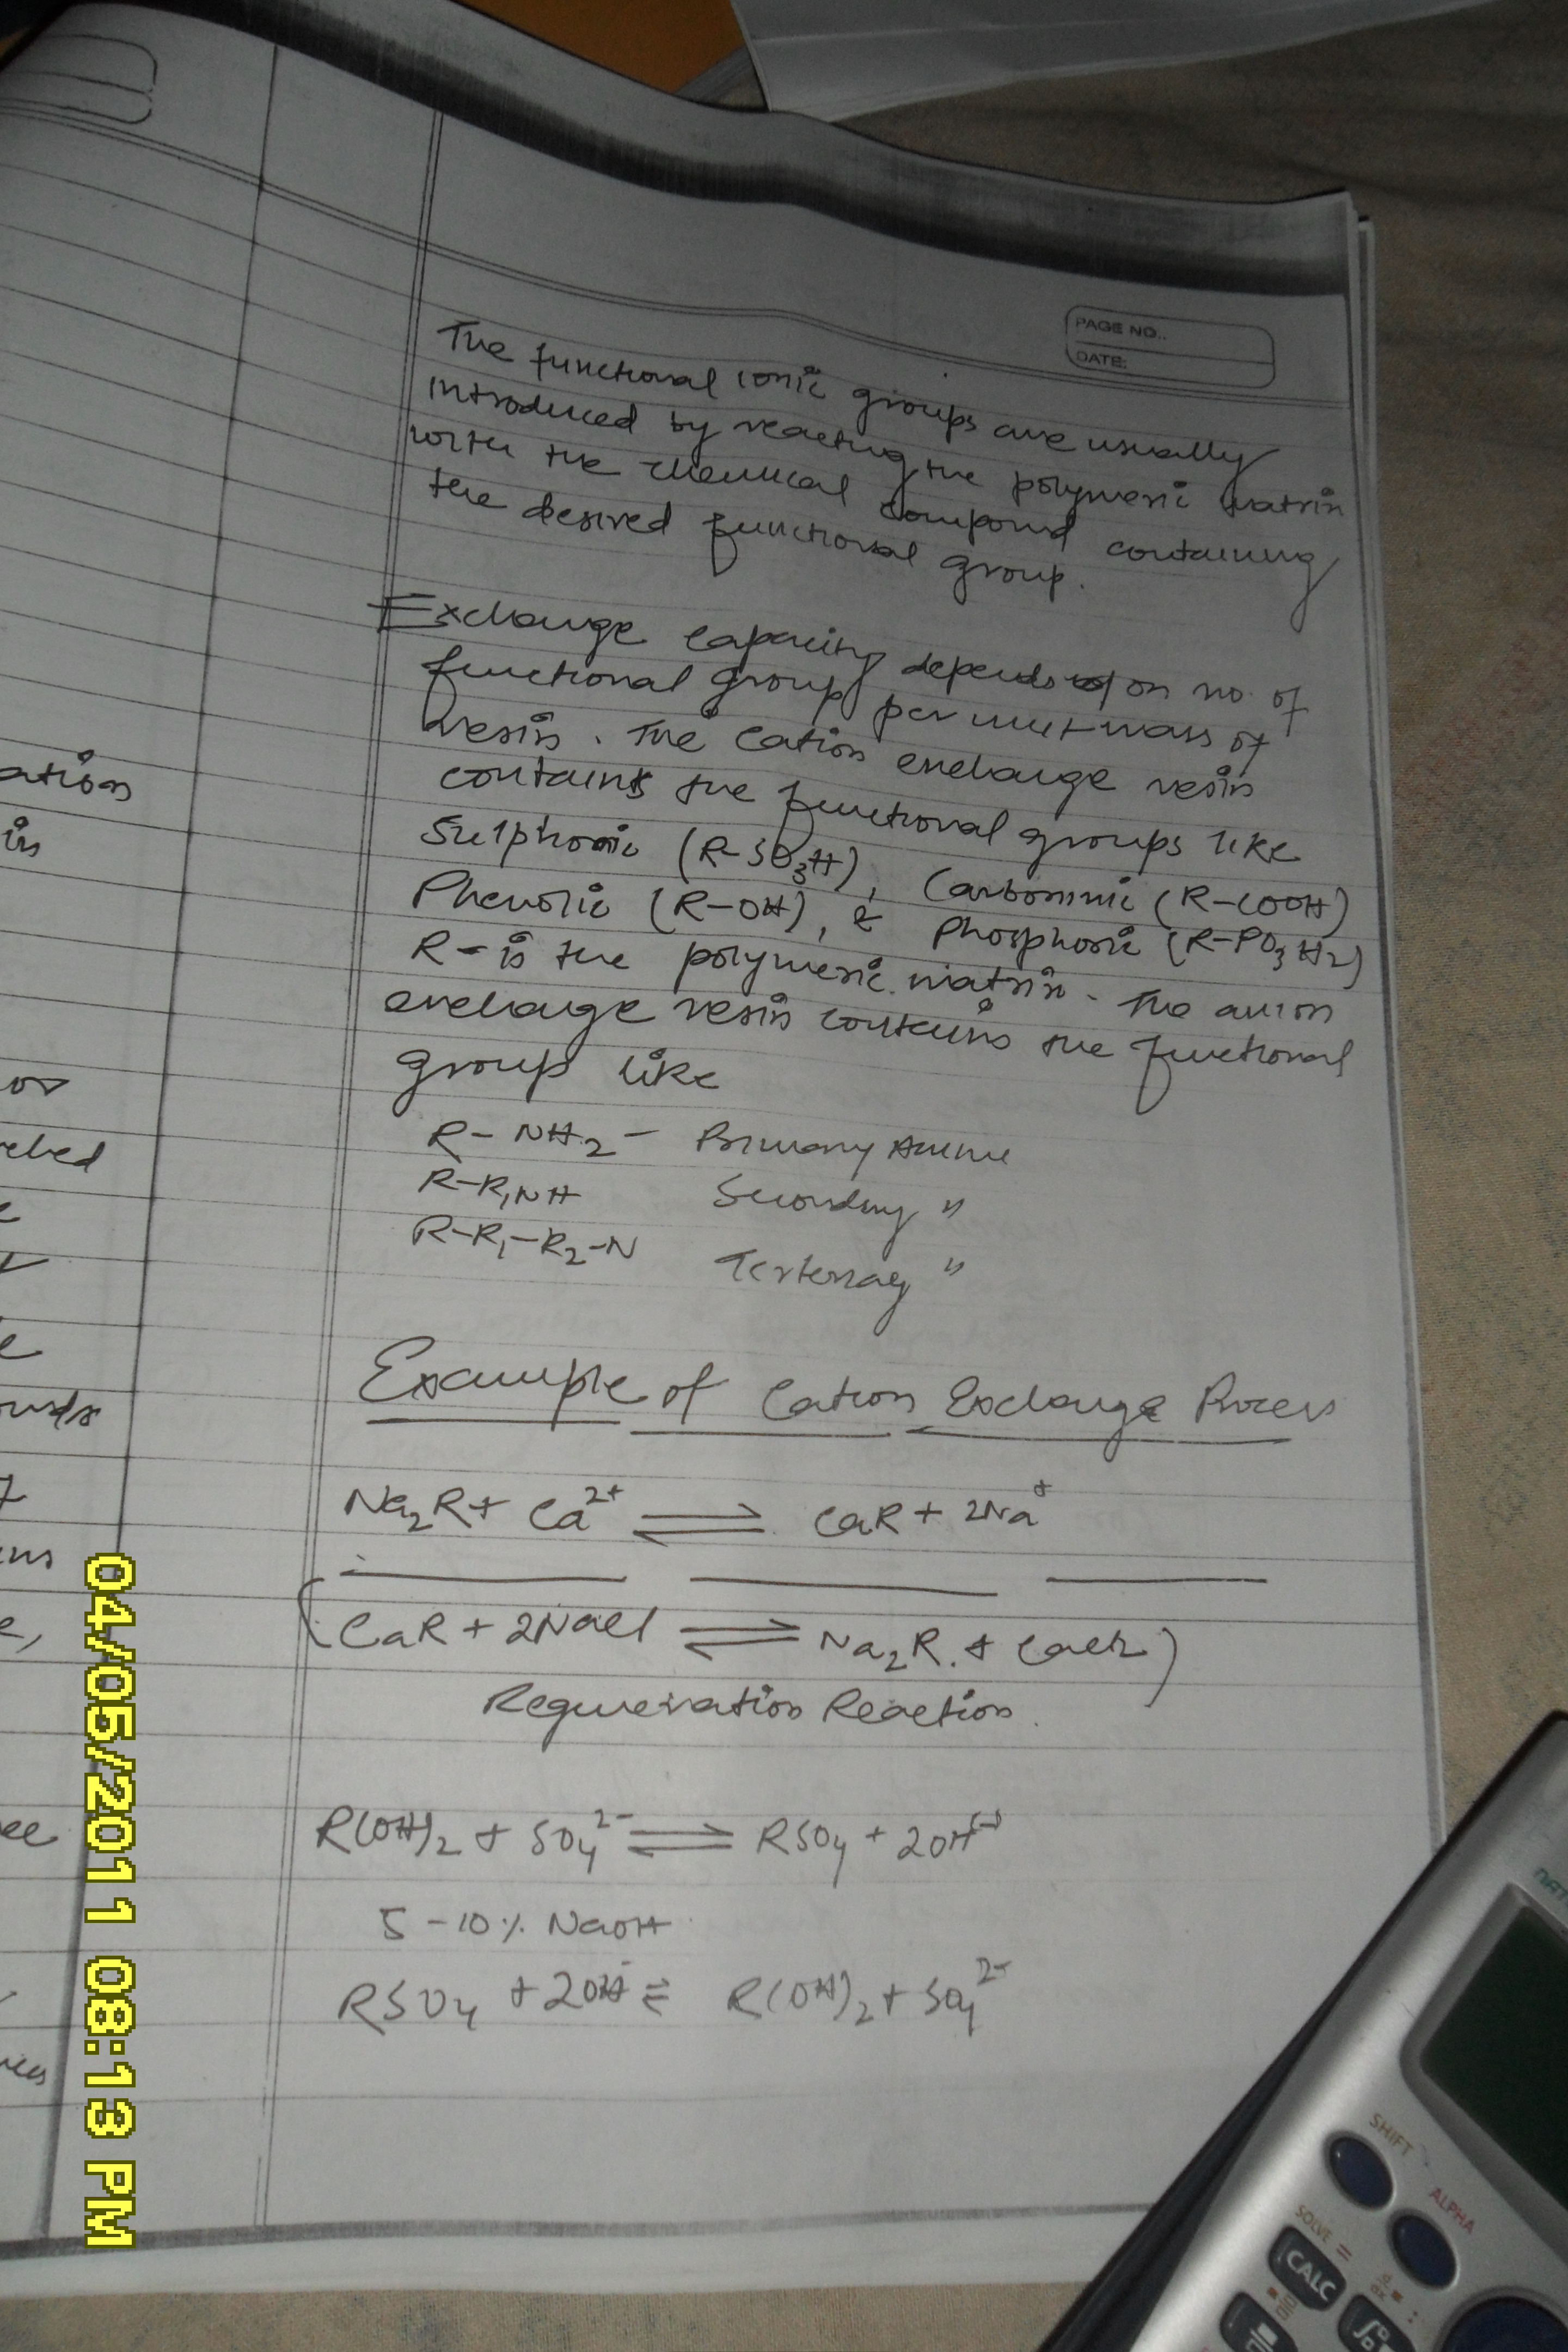 PAGE NO..
DATE:
The functional ionic groups are usually
introduced by reacting the polymeric matrix
with the chemical compound containing
the desired functional group.
Exchange capacity depends on no. of
functional group per unit mass of
resin. The cation exchange resin
contains the functional groups like
Sulphonic (R-SO3H), Carboxylic (R-COOH)
Phenolic (R-OH), & Phosphonic (R-PO3H2)
R- is the polymeric matrix. The anion
exchange resin contains the functional
group like
R-NH2 - Primary Amine
R-R1NH Secondary "
R-R1-R2-N Terternary "
Example of Cation Exchange Process
Na2R + Ca2+ ⇌ CaR + 2Na+
(CaR + 2NaCl ⇌ Na2R. + CaCl2)
Regeneration Reaction.
R(OH)2 + SO4 2- ⇌ RSO4 + 2OH(-)
5-10% NaOH
RSO4 + 2OH- ⇌ R(OH)2 + SO4 2-
ation
in
or
ns
e,
04/05/2011 08:13 PM
SHIFT
ALPHA
SOLVE =
CALC